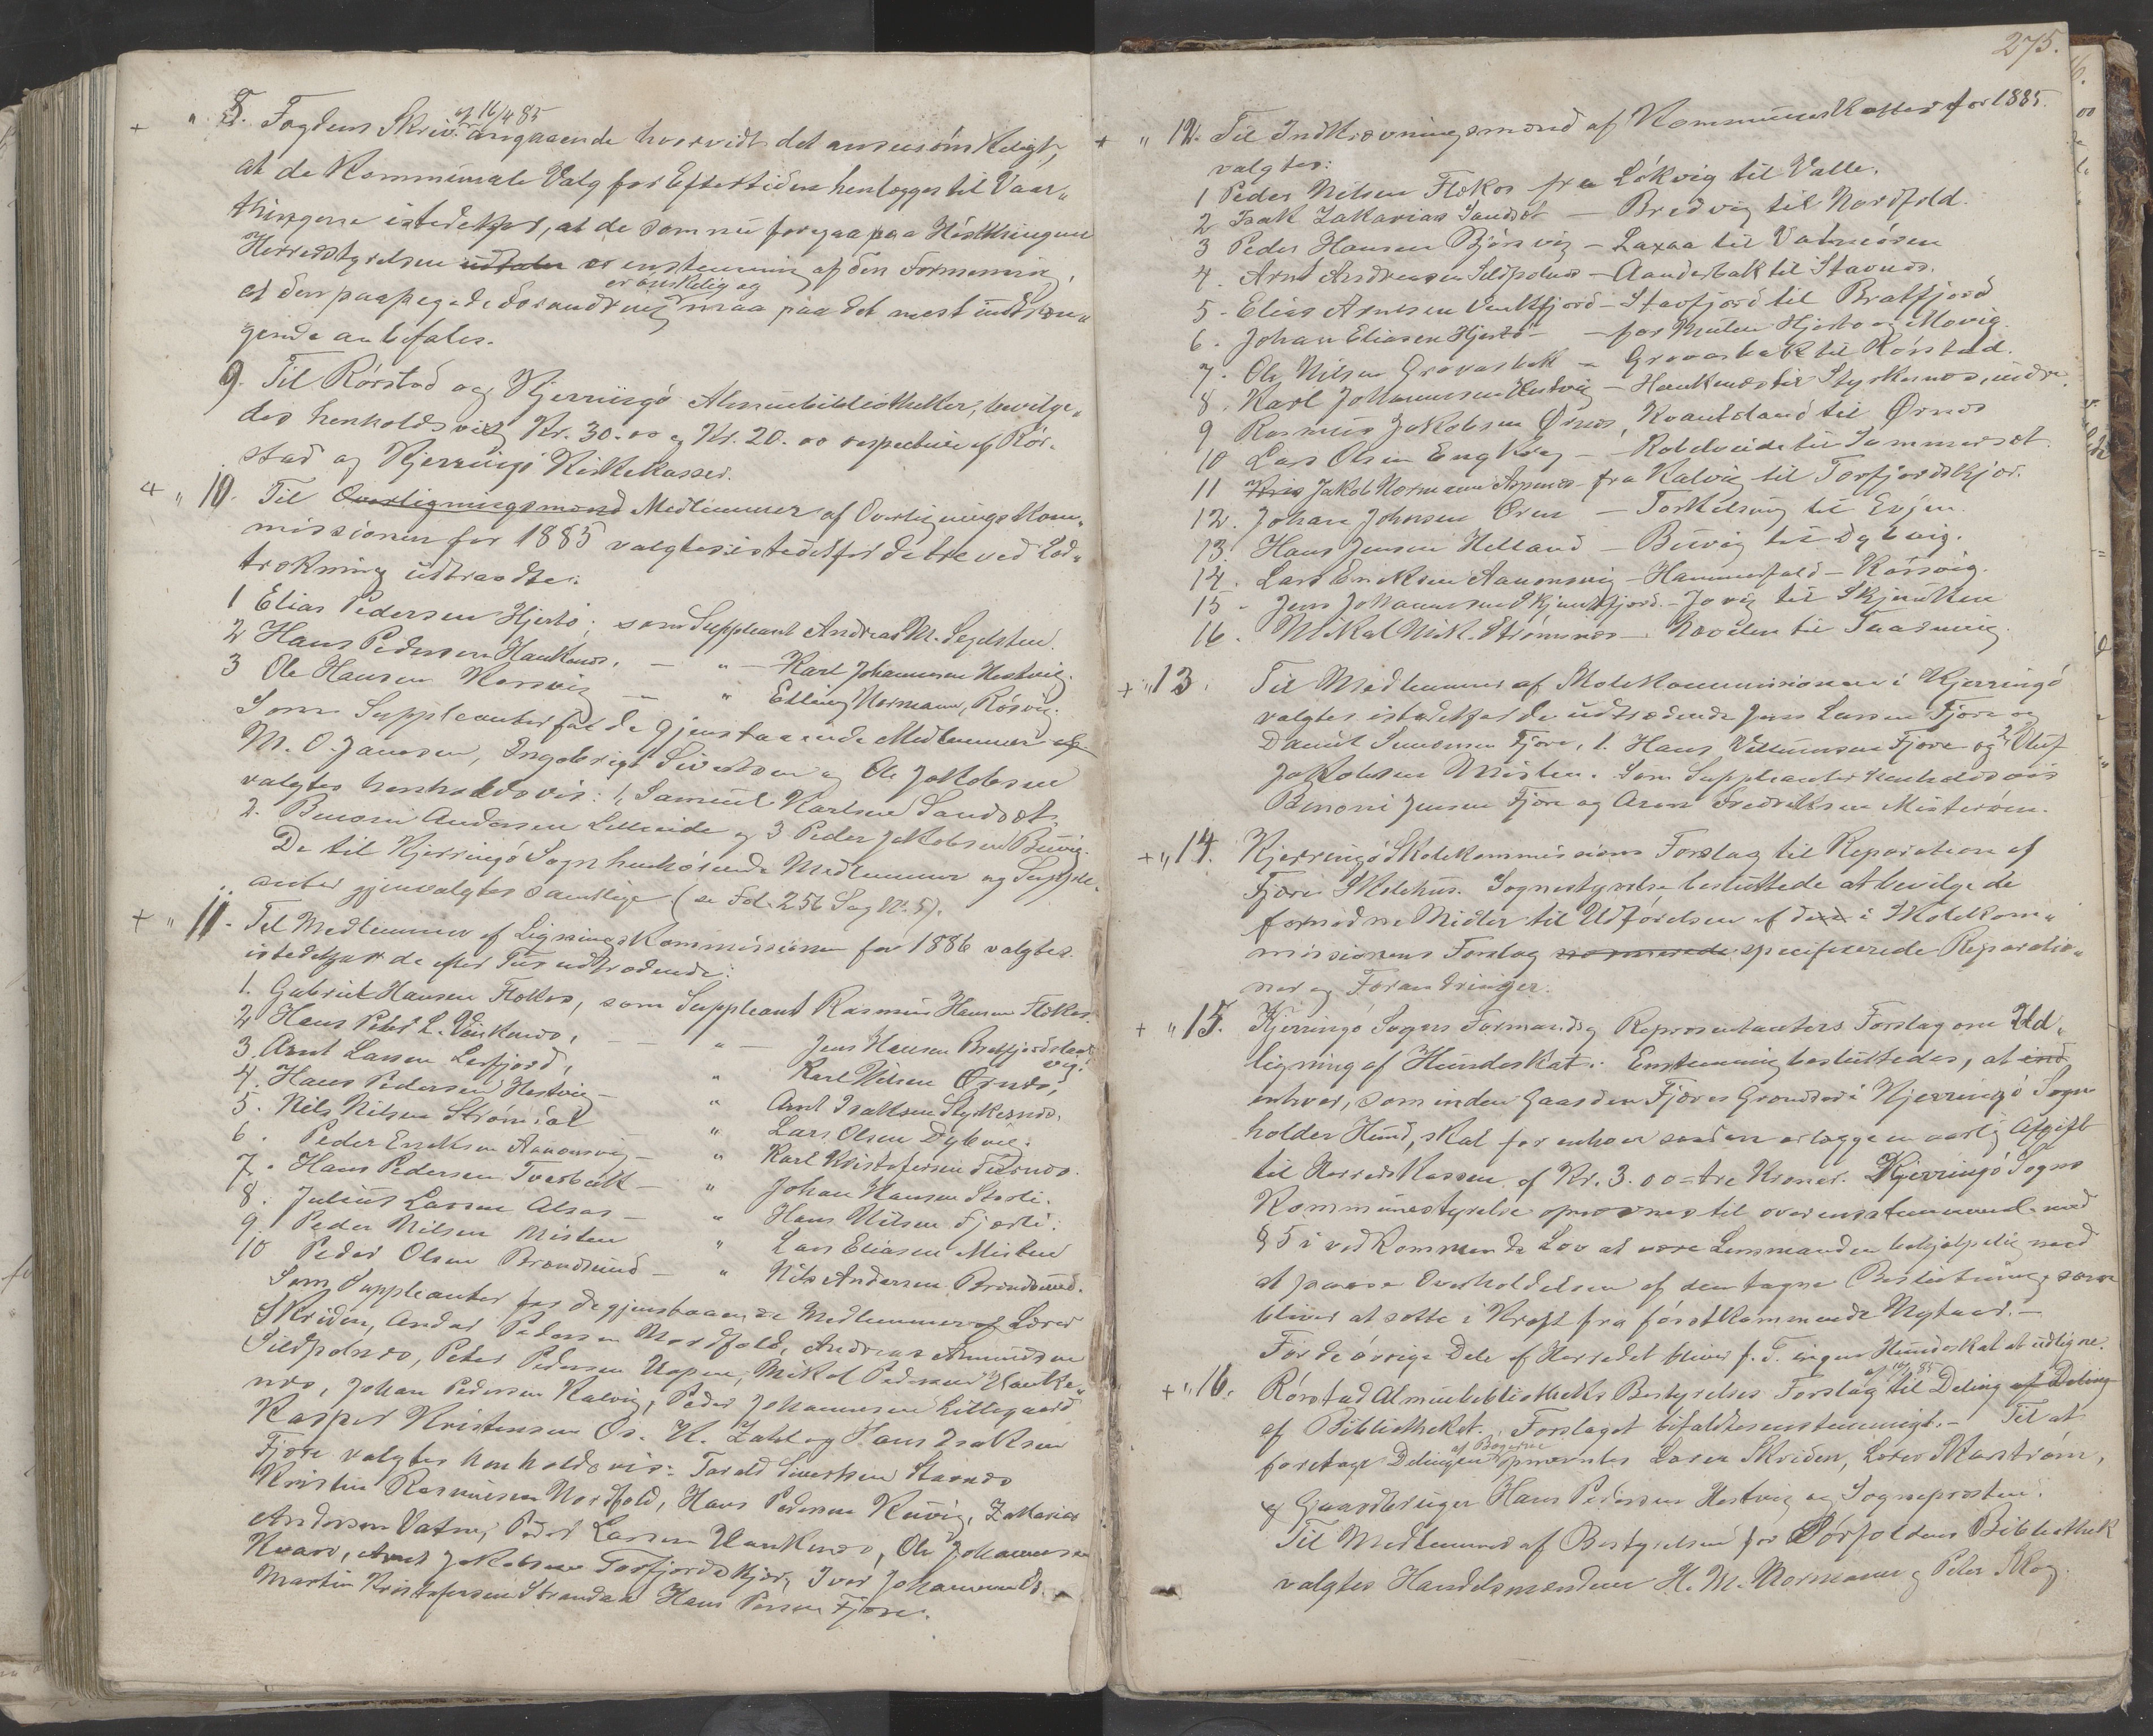 + " 8. Fogdens Skriv. af 16/4 85 angaaende hvorvidt det ansees ønskeligt,
at de Kommunale Valg for Eftertiden henlægges til Vaar„
thingene istedetfor, at de som nu foregaa paa Høstthingene
Herredstyrelsen udtaler er enstemmig af den Formening,
at den paapegede Forandring er ønskelig og maa paa det mest indtræn„
gende anbefales.
9. Til Rørstad og Kjerringø Almuebibliotheker, bevilge„
des henholdsvis Kr. 30.00 og Kr. 20.00 respective af Rør„
stad og Kjerringø Kirkekasser.
+ " 10. Til Overligningsmænd Medlemmer af Overligningskom„
missionen for 1885 valgtes istedetfor de tre ved Lod„
trækning udtraadte:
1 Elias Pedersen Hjertø; som Suppleant Andreas M. Segelsten.
2 Hans Pedersen Haukenæs, — " — Karl Johannesen Hestvig.
3 Ole Hansen Kersvig — " Elling Normann, Røsvig.
Som Suppleanter for de gjenstaaende Medlemmer af
M. O. Jansen, Ingebrigt Sivertsen og Ole Jakobsen
valgtes henholdsvis: 1, Samuel Karlsen Sandset,
2. Benoni Andersen Lilleeide og 3 Peder Jakobsen Buvig.
De til Kjerringø Sogn henhørende Medlemmer og Supple„
anter gjenvalgtes samtlige (se Fol. 256 Sag No. 5).
+ " 11. Til Medlemmer af Ligningskommissionen for 1886 valgtes
istedetfor de efter Tur udtrædende:
1. Gabriel Hansen Flokos, som Suppleant Rasmus Hansen Flokos.
2 Hans Peter L. Vinkenæs, — " — Jens Hansen Bratfjordstrand
3 Arnt Larsen Lerfjord, " Karl Nilsen Ørnæs,
4. Hans Pedersen Hestvig — " Arnt Isaksen Styrkesnæs.
5. Nils Nilsen Strømdal " Lars Olsen Dybvig.
6. Peder Eriksen Aanonsvig — " Karl Kristofersen Tiurnæs.
7. Hans Pedersen Tverbakk — " Johan Hansen Storli.
8. Julius Larsen Alsos — " Hans Nilsen Fjærli.
9. Peder Nilsen Misten " Lars Eliasen Misten
10 Peder Olsen Brændsund — " Nils Andersen Brændsund.
Som Suppleanter for de gjenstaaende Medlemmer af Lærer
Skriden, Andas Pedersen Nordfold, Andreas Amundsen
Sildpolnæs, Peter Pedersen Nopen, Mikal Pedersen Hauke„
næs, Johan Pedersen Kalvig, Peder Johannesen Lillegaard
Kasper Kristensen Os. K. Zahl og Hans Isaksen
Fjære valgtes henholdsvis: Tarald Sivertsen Stavnæs
Kristen Rasmussen Nordfold, Hans Pedersen Kuvig, Zakarias
Andersen Vatne, Peder Larsen Haukenæs, Ole Johannesen
Kvarv, Arnt Jakobsen Tørfjordskjær, Iver Johannesen Os.
Martin Kristofersen Strandaa Hans Persen Fjære.
275.
+ " 12. Til Indkrævningsmænd af Kommuneskatter for 1885.
valgtes:
1 Peder Nilsen Flokos fra Løkvig til Valle.
2 Isak Zakarias Sandset — Bredvig til Nordfold.
3 Peder Hansen Bjørsvig — Laxaa til Vatnsosen
4. Arnt Andreasen Sildpolnæs — Aanderbak til Stavnæs.
5. Elias Arnesen Vinkfjord — Stavfjord til Bratfjord
6. Johan Eliasen Hjertø — for Mulen Hjertø og Movig.
7. Ole Nilsen Grovasbak — Grovasbak til Rørstad.
8. Karl Johannesen Hestvig — Haukenæs til Styrkesnæs, indre.
9 Rasmus Jakobsen Ørnæs, Kvantoland til Ørnæs
10 Lars Olsen Engkrog — Kobbeleide til Sommerset.
11 Kris Jakob Normann Aspenæs — fra Kalvig til Tørfjordskjær.
12. Johan Johnsen Øren — Torkelsvig til Evjen.
13. Hans Jensen Helland — Buvig til Dybvig.
14. Lars Eriksen Aanonsvig — Hammerfald — Røsvig.
15. Jens Johannesen Skjunkfjord. — Jovig til Skjunken
16. Mikal Nik. Strømnæs — Røvelen til Taarnvig.
+ " 13. Til Medlemmer af Skolekommissionen i Kjerringø
valgtes istedetfor de udtrædende Jens Larsen Fjære og
Daniel Simonsen Fjære, 1. Hans Villumsen Fjære og 2, Oluf
Jakobsen Misten. Som Suppleanter henholdsvis
Benoni Jensen Fjære og Aron Fredriksen Misterøen.
+ " 14. Kjerringø Skolekommissions Forslag til Reparation af
Fjære Skolehus. Sognestyrelse besluttede at bevilge de
fornødne Midler til Udførelsen af de i Skolekom„
missionens Forslag specificerede Reparatio„
ner og Forandringer.
+ " 15. Kjerringø Sogns Formænds og Repræsentanters Forslag om Ud„
ligning af Hundeskat: Enstemmig besluttedes, at ind
enhver, som inden Gaarden Fjæres Grændser i Kjerringø Sogn
holder Hund, skal for enhver saadan erlægge en aarlig Afgift
til Herredskassen af Kr. 3.00 = tre Kroner. Kjerringø Sogns
Kommunestyrelse opnævnes til overensstemmende med
§ 5 i vedkommende Lov at være Lensmanden behjælpelig med
at paase Overholdelsen af den tagne Beslutning, som
bliver at sætte i Kraft fra førstkommende Nytaar. —
For de øvrige Dele af Herredet bliver f. T. ingen Hundeskat at udligne.
+ " 16. Rørstad Almuebibliotheks Bestyrelses Forslag af 10/ 85 til Deling af Deling
af Bibliotheket. Forslaget bifaldtes enstemmigt. — Til at
foretage Delingen af Bøgerne opnævntes Lærer Skriden, Lærer Maström,
og Gaardbruger Hans Pedersen Hestvig og Sognepræsten.
Til Medlemmer af Bestyrelsen for Sørfoldens Bibliothek
valgtes Handelsmændene H. M. Normann og Peter Skog.